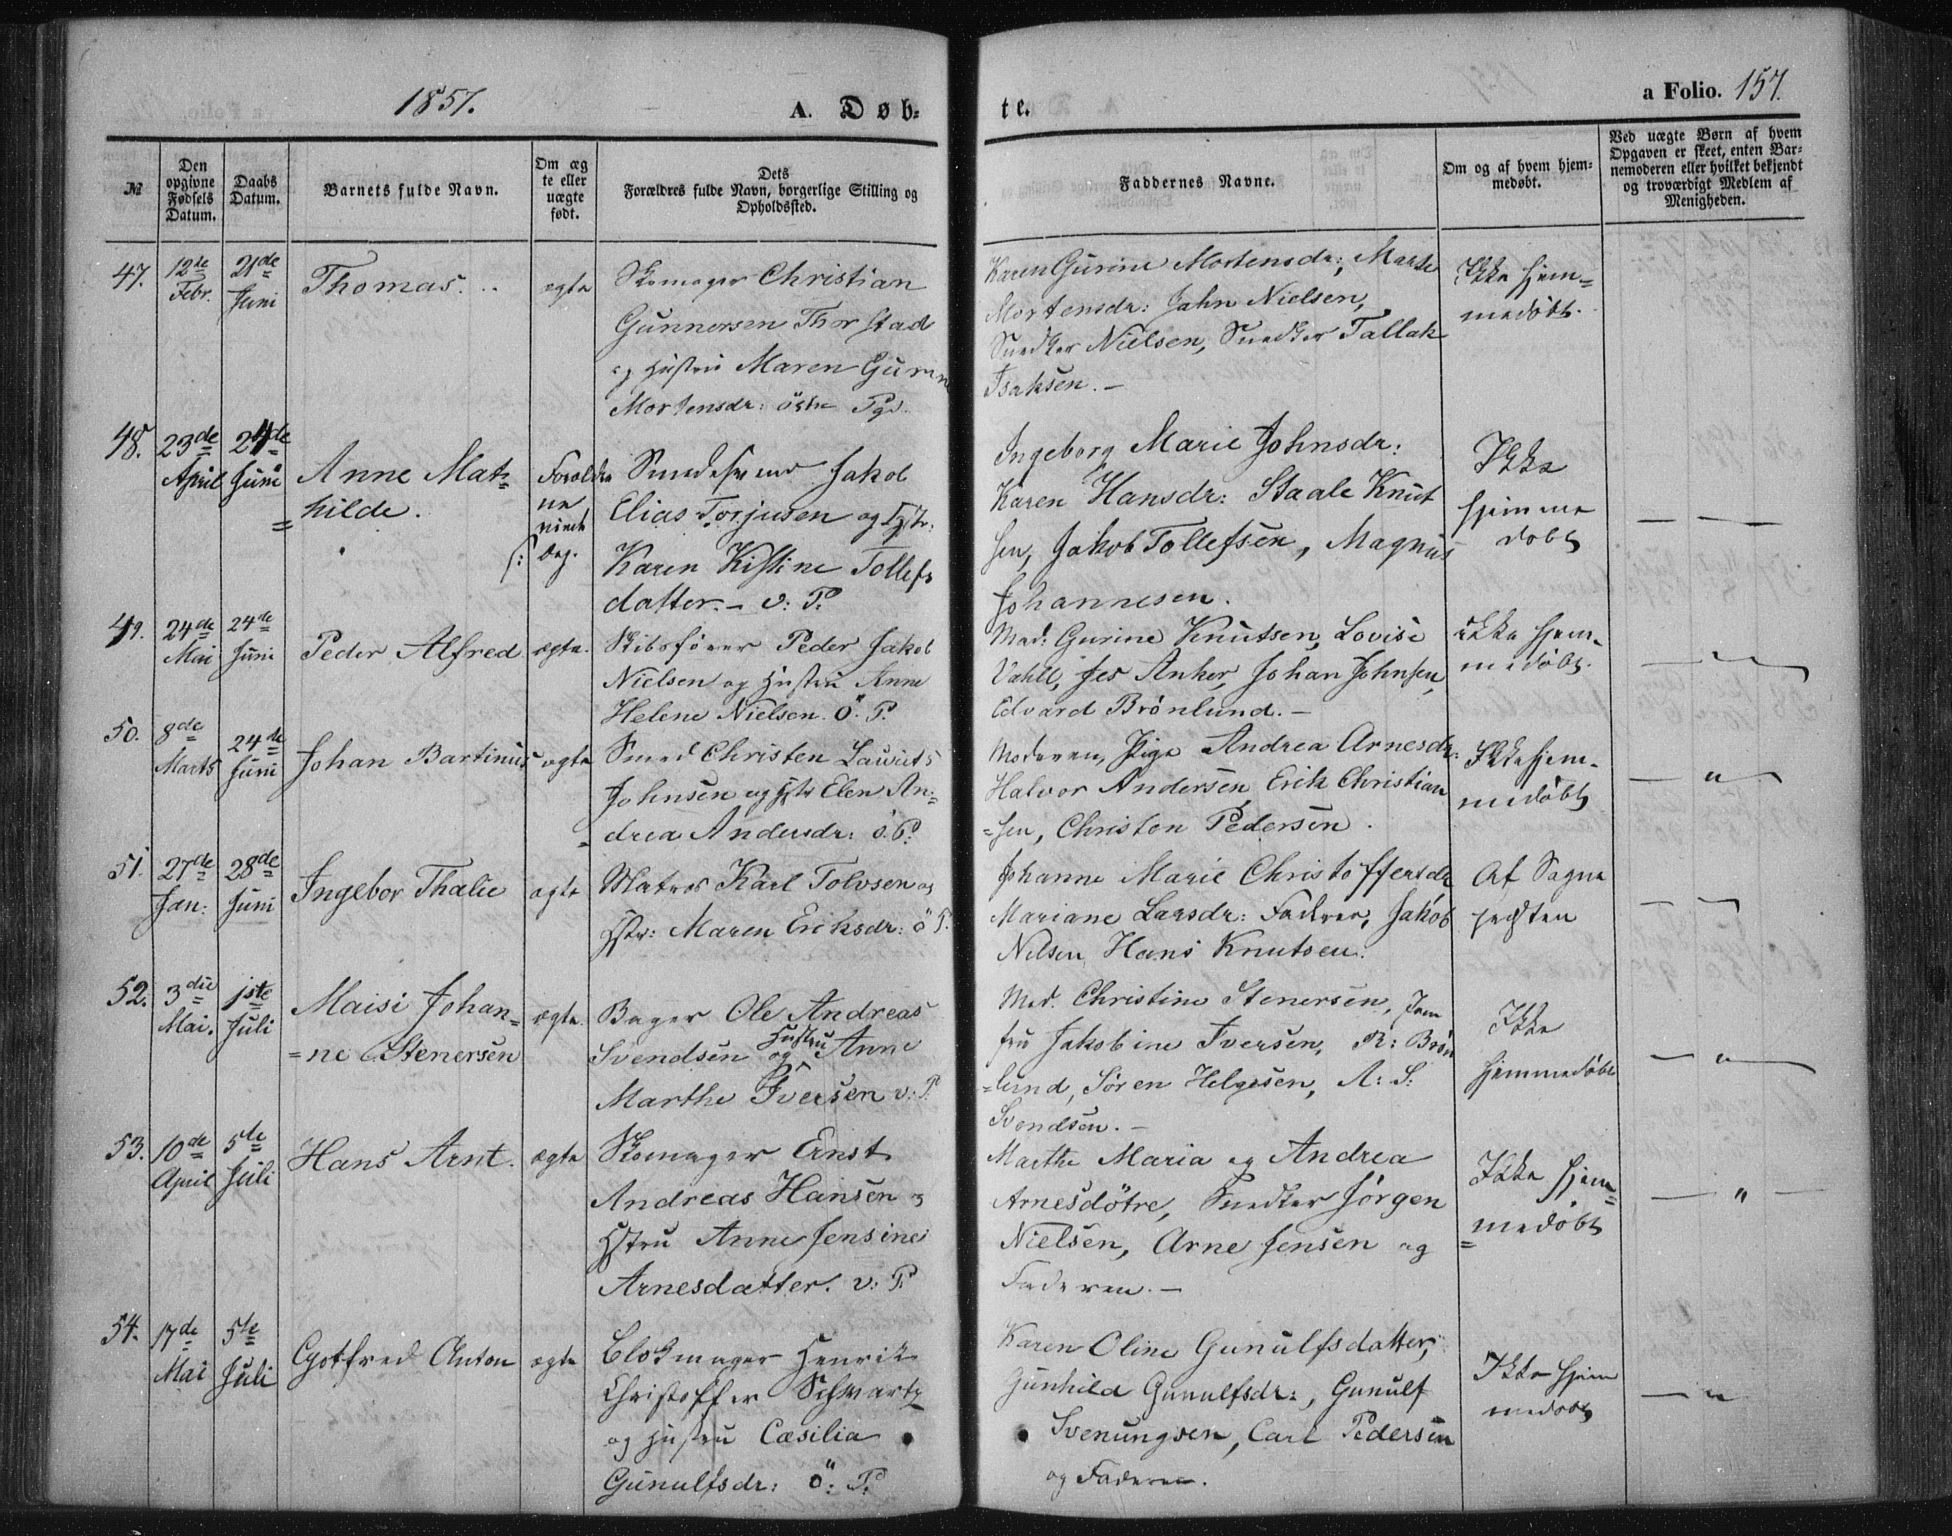 1857.
A. Døb-
te.
a Folio. 157.
№
Den opgivne Fødsels Datum.
Daabs Datum.
Barnets fulde Navn.
Om ægte eller uægte født.
Dets Forældres fulde Navn, borgerlige Stilling og Opholdssted.
Faddernes Navne.
Om og af hvem hjemmedøbt.
Ved uægte Børn af hvem Opgaven er skeet, enten Barnemoderen eller hvilket bekjendt og troværdigt Medlem af Menigheden.
47.
12te Febr.
21de Juni
Thomas.
ægte
Skomager Christian
Gunnersen Thorstad
og Hustru Maren Gurine
Mortensdr: östre
Karen Gurine Mortensdr:, Marte
Mortensdr: Jahn Nielsen,
Snedker Nielsen, Snedker Tallak
Isaksen. –
Ikke hjem=
medøbt.
48.
23de April
24de Juni
Anne Mat=
hilde.
Forældre
ne
Smedesvend Jakob
Elias Torjusen og Hstr:
Karen Kistine Tollefs
datter. – v: P.
Ingeborg Marie Johnsdr:
Karen Hansdr: Staale Knut
sen, Jakob Tollefsen, Magnus
Johannesen.
Ikke
hjemme
døbt
49.
24de Mai
24de Juni
Peder Alfred
ægte.
Skibsfører Peder Jakob
Nielsen og Hustru Anne
Helene Nielsen. Ö. P.
Mad: Gurine Knutsen, Lovise
Vahll, Jes Anker, Johan Johnsen,
Edvard Brönlund. –
ikke hjem=
medøbt.
50.
8de Marts
24de Juni
Johan Bartinus
ægte
Smed Christen Laurits
Johnsen og Hstr Elen An=
drea Andersdr: ö. P.
Moderen, Pige Andrea Arnesdr:
Halvor Andersen, Erik Christian
=sen, Christen Pedersen.
Ikke hjem=
medøbt
51.
27de Jan:
28de Juni
Ingebor Thalie
ægte
Matros Karl Tolvsen og
Hstr: Maren Eriksdr: ö P.
Johanne Marie Christoffersdr
Mariane Larsdr: Faderen, Jakob
Nilsen, Hans Knutsen.
Af Sogne
præsten
52.
3die Mai.
1ste Juli
Maisi Johan=
=ne Stenersen
ægte.
Bager Ole Andreas
Svendsen og Hustru Anne
Marthe Iversen v: P.
Mad. Christine Stenersen, Jom
fru Jakobine Iversen, R: Brön
=lund, Sören Helgesen, A: S:
Svendsen. –
Ikke
hjemmedøbt
53.
10de April
5te Juli
Hans Arnt.
ægte
Skomager Ernst
Andreas Hansen og
Hstru Anne Jensine
Arnesdatter. v: P.
Marthe Maria og Andrea
Arnesdötre, Snedker Jörgen
Nielsen, Arne Jensen og
Faderen. –
Ikke hjem=
=medøbt
54.
17de Mai
5te Juli
Gotfred Anton
ægte
Blokmager Henrik
Christoffer Schwartz
og Hustru Cæsilia
Gunulfsdr: ö: P.
Karen Oline Gunulfsdatter,
Gunhild Gunulfsdr:, Gunulf
Svenungsen, Carl Pedersen
og Faderen.
Ikke hjem
medøbt